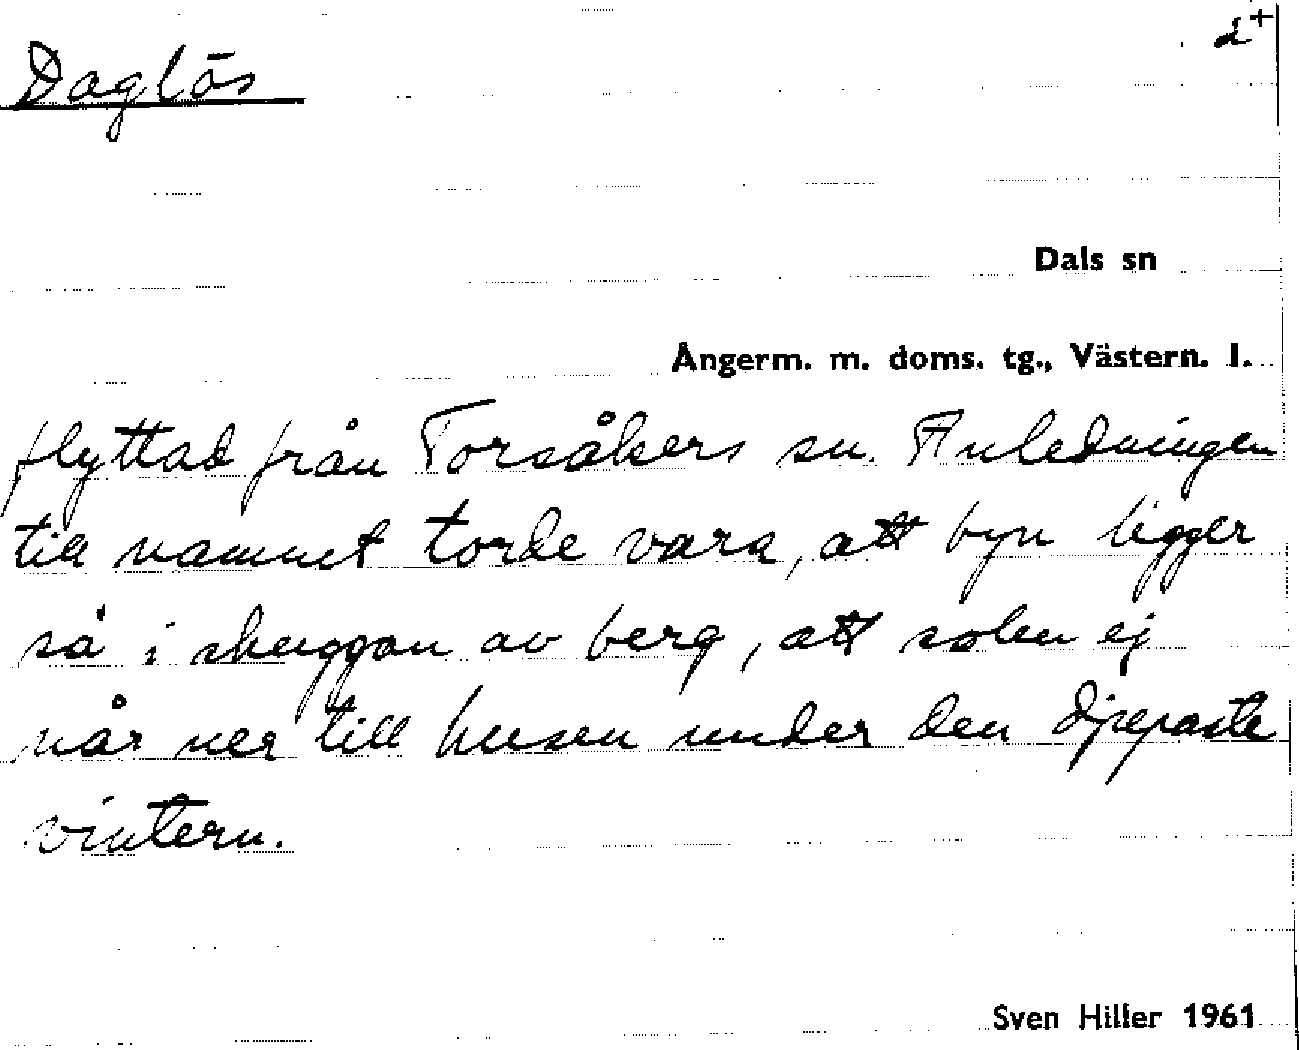 2+
Daglös
Dals sn
Ångerm. m. doms. tg., Västern. l.
flyttad från Torsåkers sn. Anledningen
till namnet torde vara, att byn ligger
så i skuggan av berg, att solen ej
når ner till husen under den djupaste
vintern.
Sven Hiller 1961